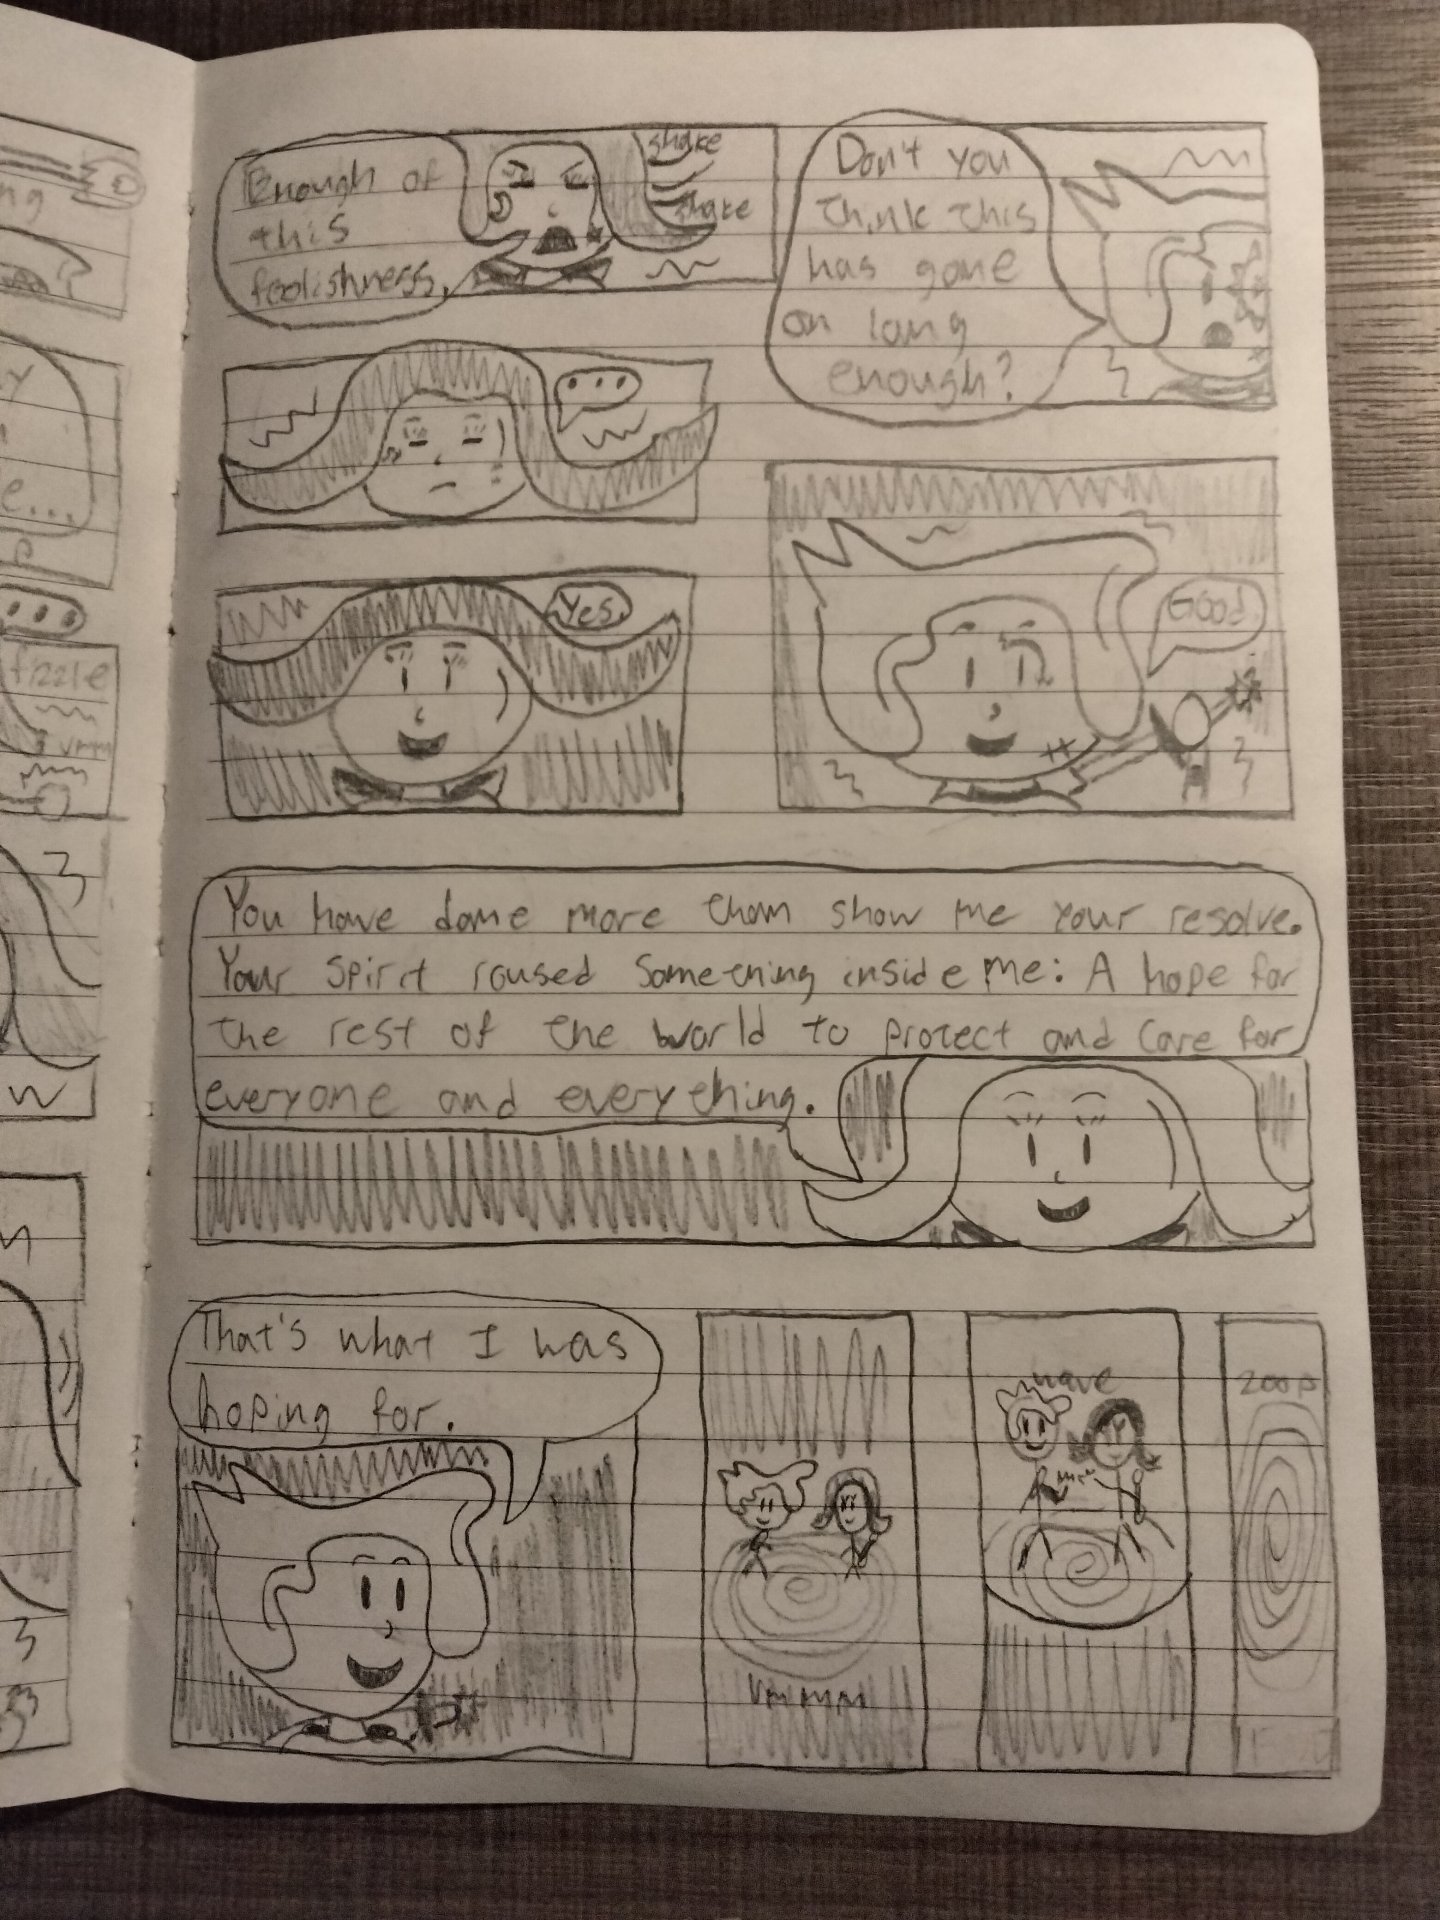 ng
y
e...
p
...
fizzle
vmm
w
Enough of
this
foolishness.
shake
shake
Don't you
think this
has gone
on long
enough?
...
Yes.
Good.
You have done more than show me your resolve.
Your spirit roused something inside me: A hope for
the rest of the world to protect and care for
everyone and everything.
That's what I was
hoping for.
Vmmmm
wave
zoop